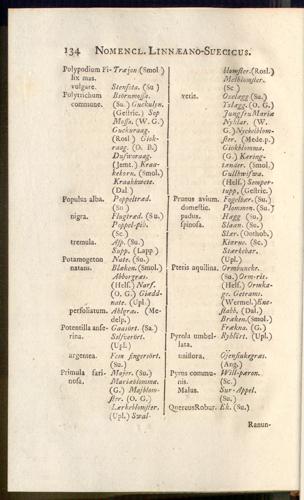 134 NOMENCL. LINNÆANO-SUECICUS.
Polypodium Fi- Træjon (Smol.)
lix mas.
vulgare. Stensöta. (Su.)
Polytrichum Biörnmossa.
commune. (Su.) Guckulyn.
(Gestric.) Sop
Mossa. (W. G.)
Guckuraag.
(Rosl.) Giok-
raag. (O. B.)
Dufworaag.
(Jemt.) Kraa-
kekorn. (Smol.)
Kraakhwete.
(Dal.)
Populus alba. Poppeltræd.
(Su.)
nigra. Flugtræd. (Su.)
(Sc.)
tremula. Asp. (Su.)
Supp. (Lapp.)
Potamogeton Nate. (Su.)
natans. Blæken. (Smol.)
Abborgræs.
(Hels.) Narf.
(O. G.) Giædd-
nate. (Upl.)
perfoliatum. Ahlgræs. (Me-
delp.)
Potentilla anse- Gaasört. (Sa.)
rina. Silfverört.
(Upl.)
argentea. Fem fingerört.
(Su.)
Primula fari- Major. (Su.)
nosa. Mariæblomma.
(G.) Majblom-
ster. (O. G.)
Lærkeblomster.
(Upl.) Swal-
blomster. (Rosl.)
Melblomster.
(Sc.)
veris. Oxelægg (Su.)
Tslægg. (O. G.)
Jungfru Mariæ
Nyklar. (W.
G.) Nyckelblom-
ster. (Mede.p.)
Giökblomma.
(G.) Kæring-
tænder. (Smol.)
Gullhwifwa.
(Hels.) Semper-
tupp. (Gestric.)
Prunus avium. Fogelbær. (Su.)
domestic. Plommon. (Su.)
padus. Hægg (Su.)
spinosa. Slaan. (Su.)
Slær. (Oothob.)
Kierne. (Sc.)
(Upl.)
Pteris aquilina. Ormbuncke.
(Su.) Orm-ris.
(Hels.) Ormka-
ge. Getrams.
(Wermel.) Ene-
stabb. (Dal.)
Bræken. (Smol.)
Frækna. (G.)
Pyrola umbel- Ryblört. (Upl.)
lata.
uniflora. Ögensukegræs.
(Ang.)
Pyrus commu- Will-pæron.
nis. (Sc.)
Malus. Sur-Appel.
(Su.)
Quercus Robur. Ek. (Su.)
Ranun-